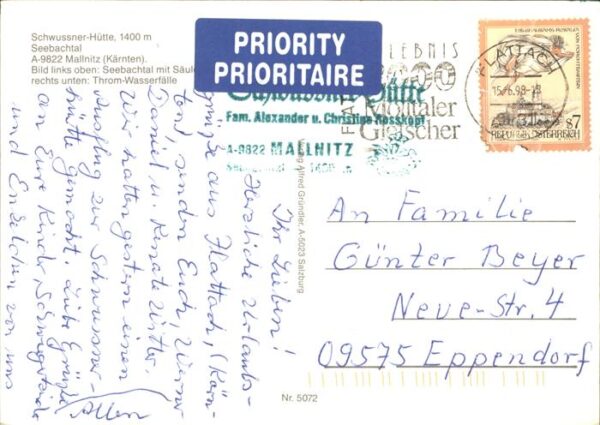 Schwussner-Hütte, 1400 m
Seebachtal
A-9822 Mallnitz (Kärnten).
Bild links oben: Seebachtal mit Säule
rechts unten: Throm-Wasserfälle
PRIORITY
PRIORITAIRE
ERLEBNIS
Mölltaler
Gletscher
Schwussner Hütte
Fam. Alexander u. Christine Rosskopf
A-9822 MALLNITZ
FLATTACH
15.6.98-18
REPUBLIK ÖSTERREICH
S7
Ihr Lieben!
Herzliche Urlaubs-
grüße aus Flattach, (Kärn-
ten) senden Euch, Werner
Daniel u. Renate
Wir hatten gestern einen
Ausflug zur Schwussner-
hütte gemacht. Liebe Grüße
an Eure Kinder, Schwiegerkinder
und Enkelchen von uns
Allen
Verlag Alfred Gründler, A-5023 Salzburg
Nr. 5072
An Familie
Günter Beyer
Neue-Str. 4
09575 Eppendorf